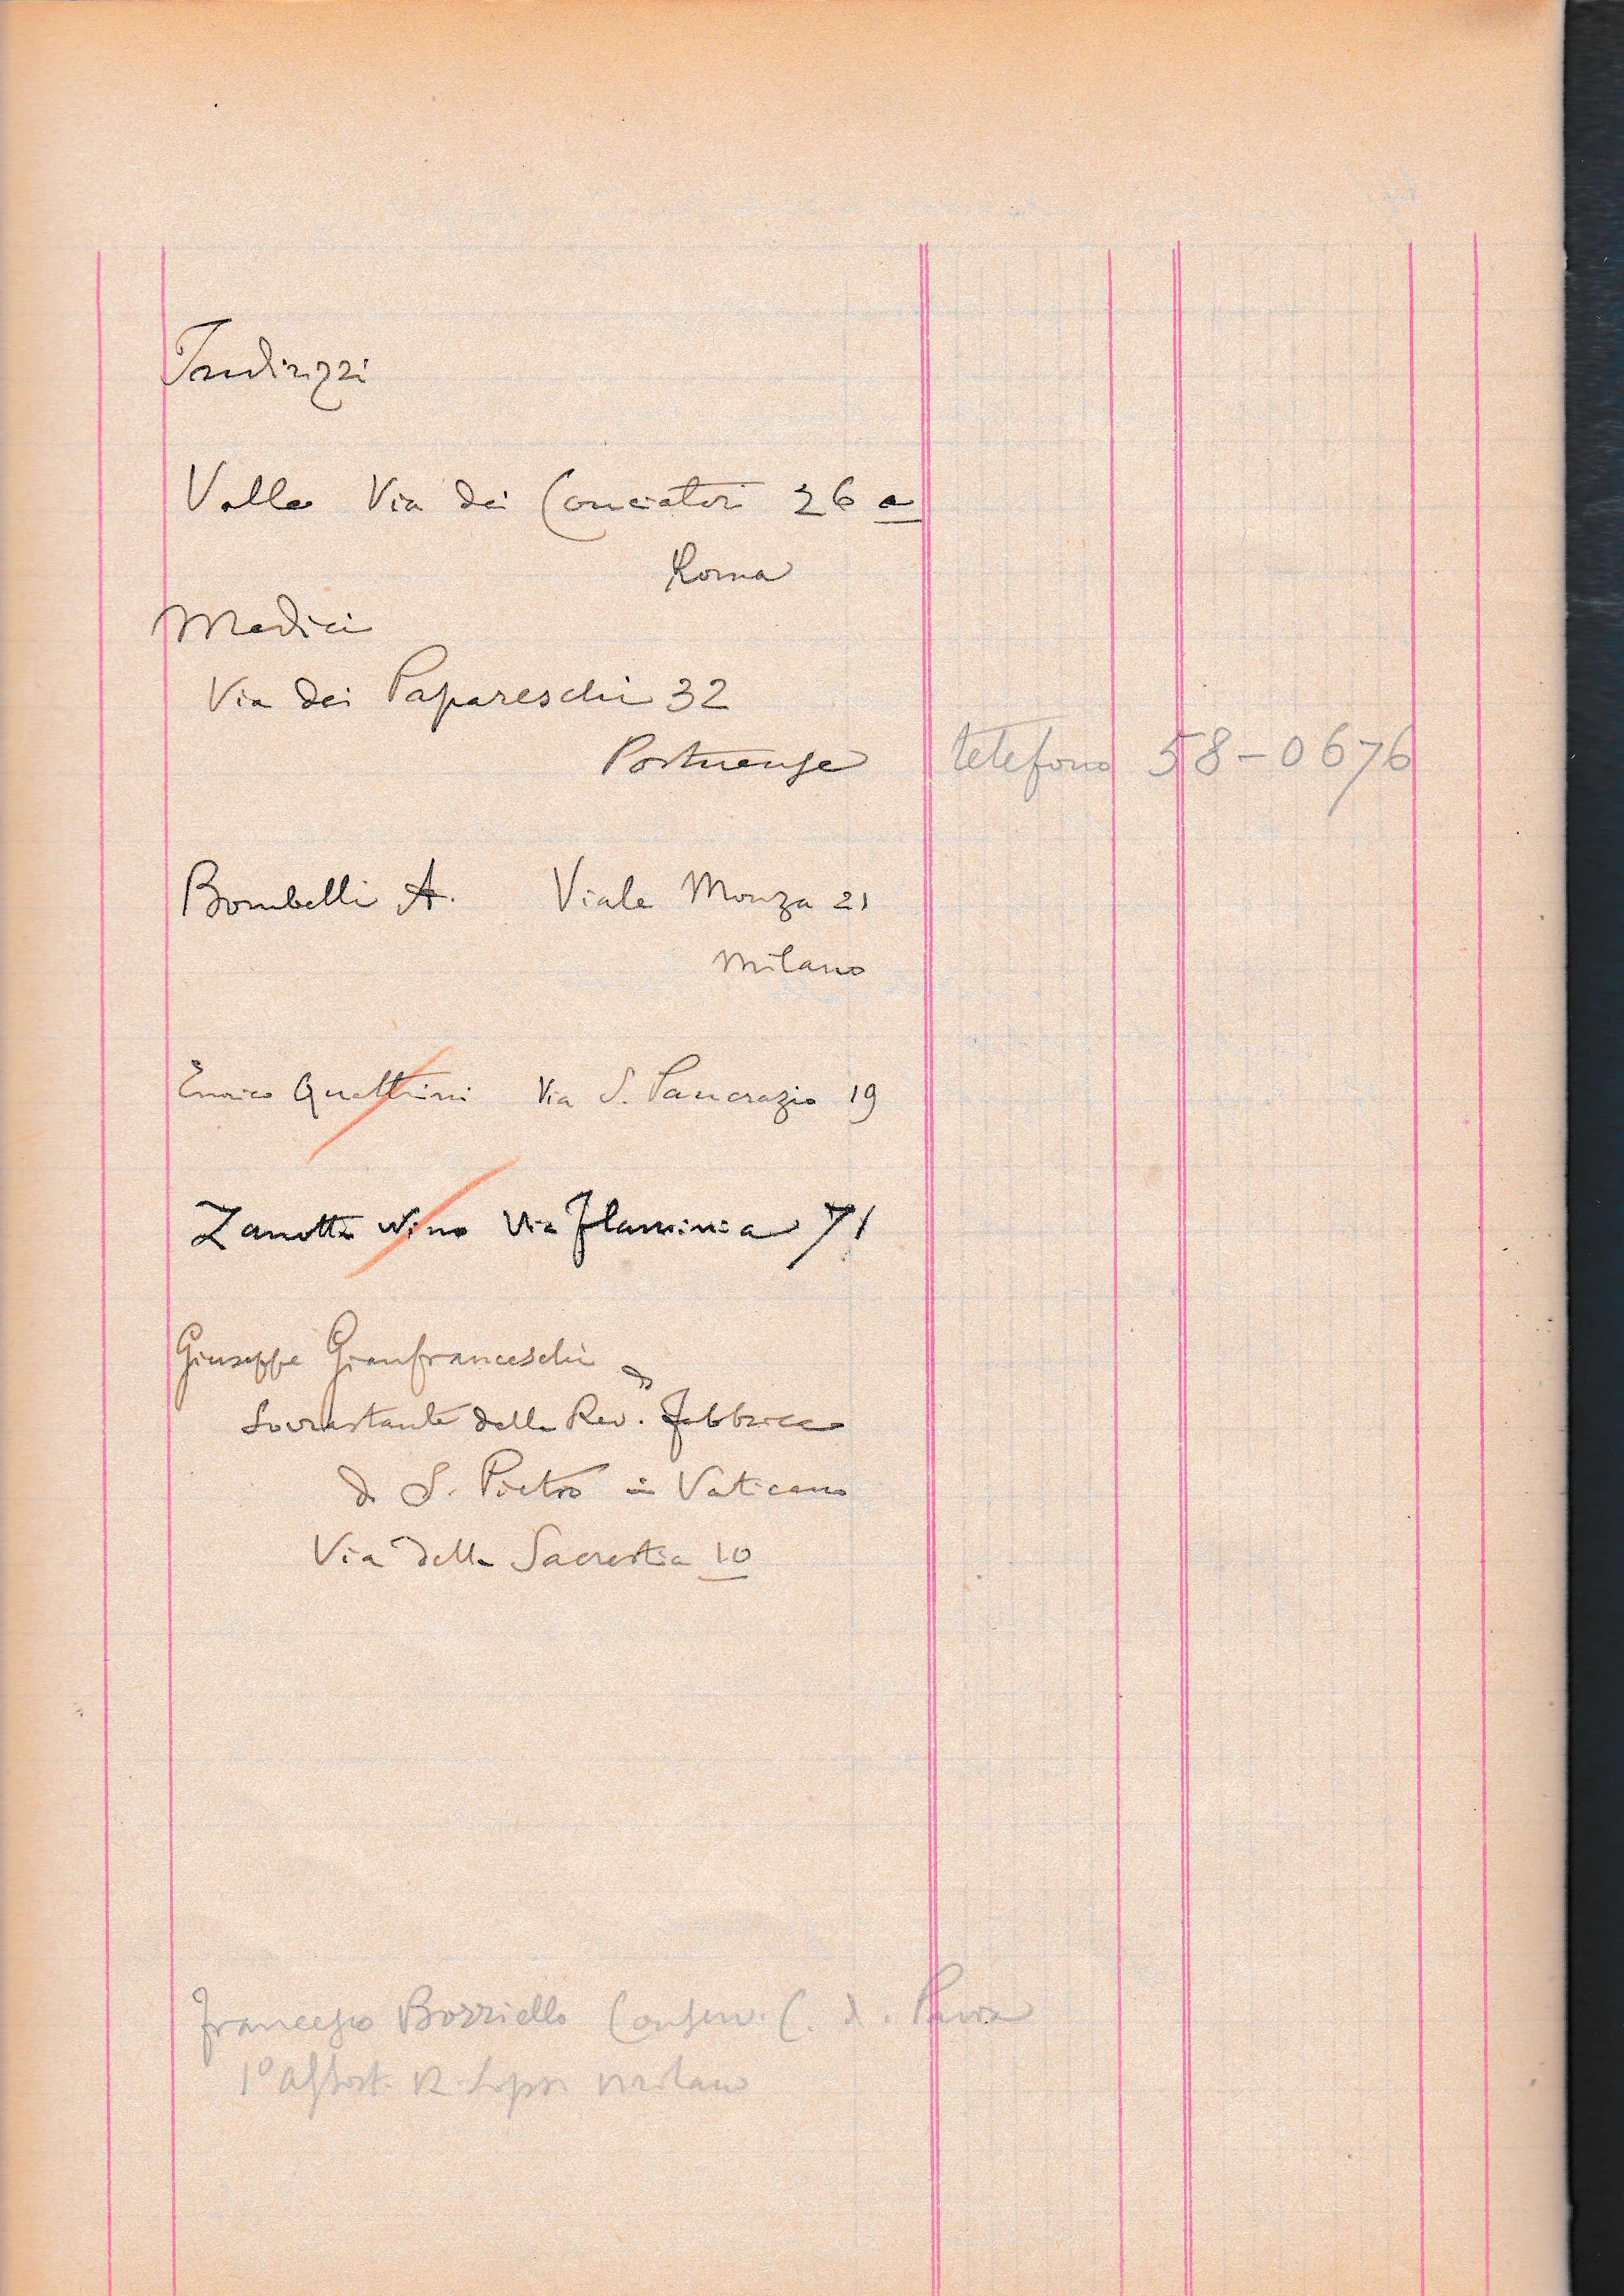 Indirizzi
Valle Via dei Conciatori 26 a
Roma
Medici
Via dei Papareschi 32
Portuense telefono 58-0676
Bombelli A. Viale Monza 21
Milano
Enrico Quattrini Via S. Pancrazio 19
Zanotti Nino Via Flaminia 71
Giuseppe Gianfranceschi
Sovrastante della Rev.da Fabbrica
di S. Pietro in Vaticano
Via della Sacrestia 10
Francesco Borriello Conserv. C. d. Pavia
1° Milano